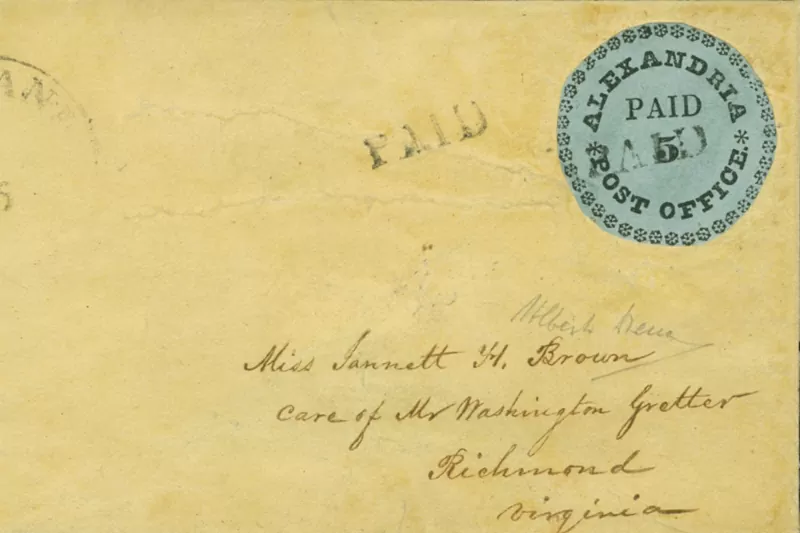 ALEXANDRIA
PAID
5
* POST OFFICE. *
PAID
PAID
5
Miss Jannett H. Brown
Care of Mr Washington Gretter
Richmond
Virginia